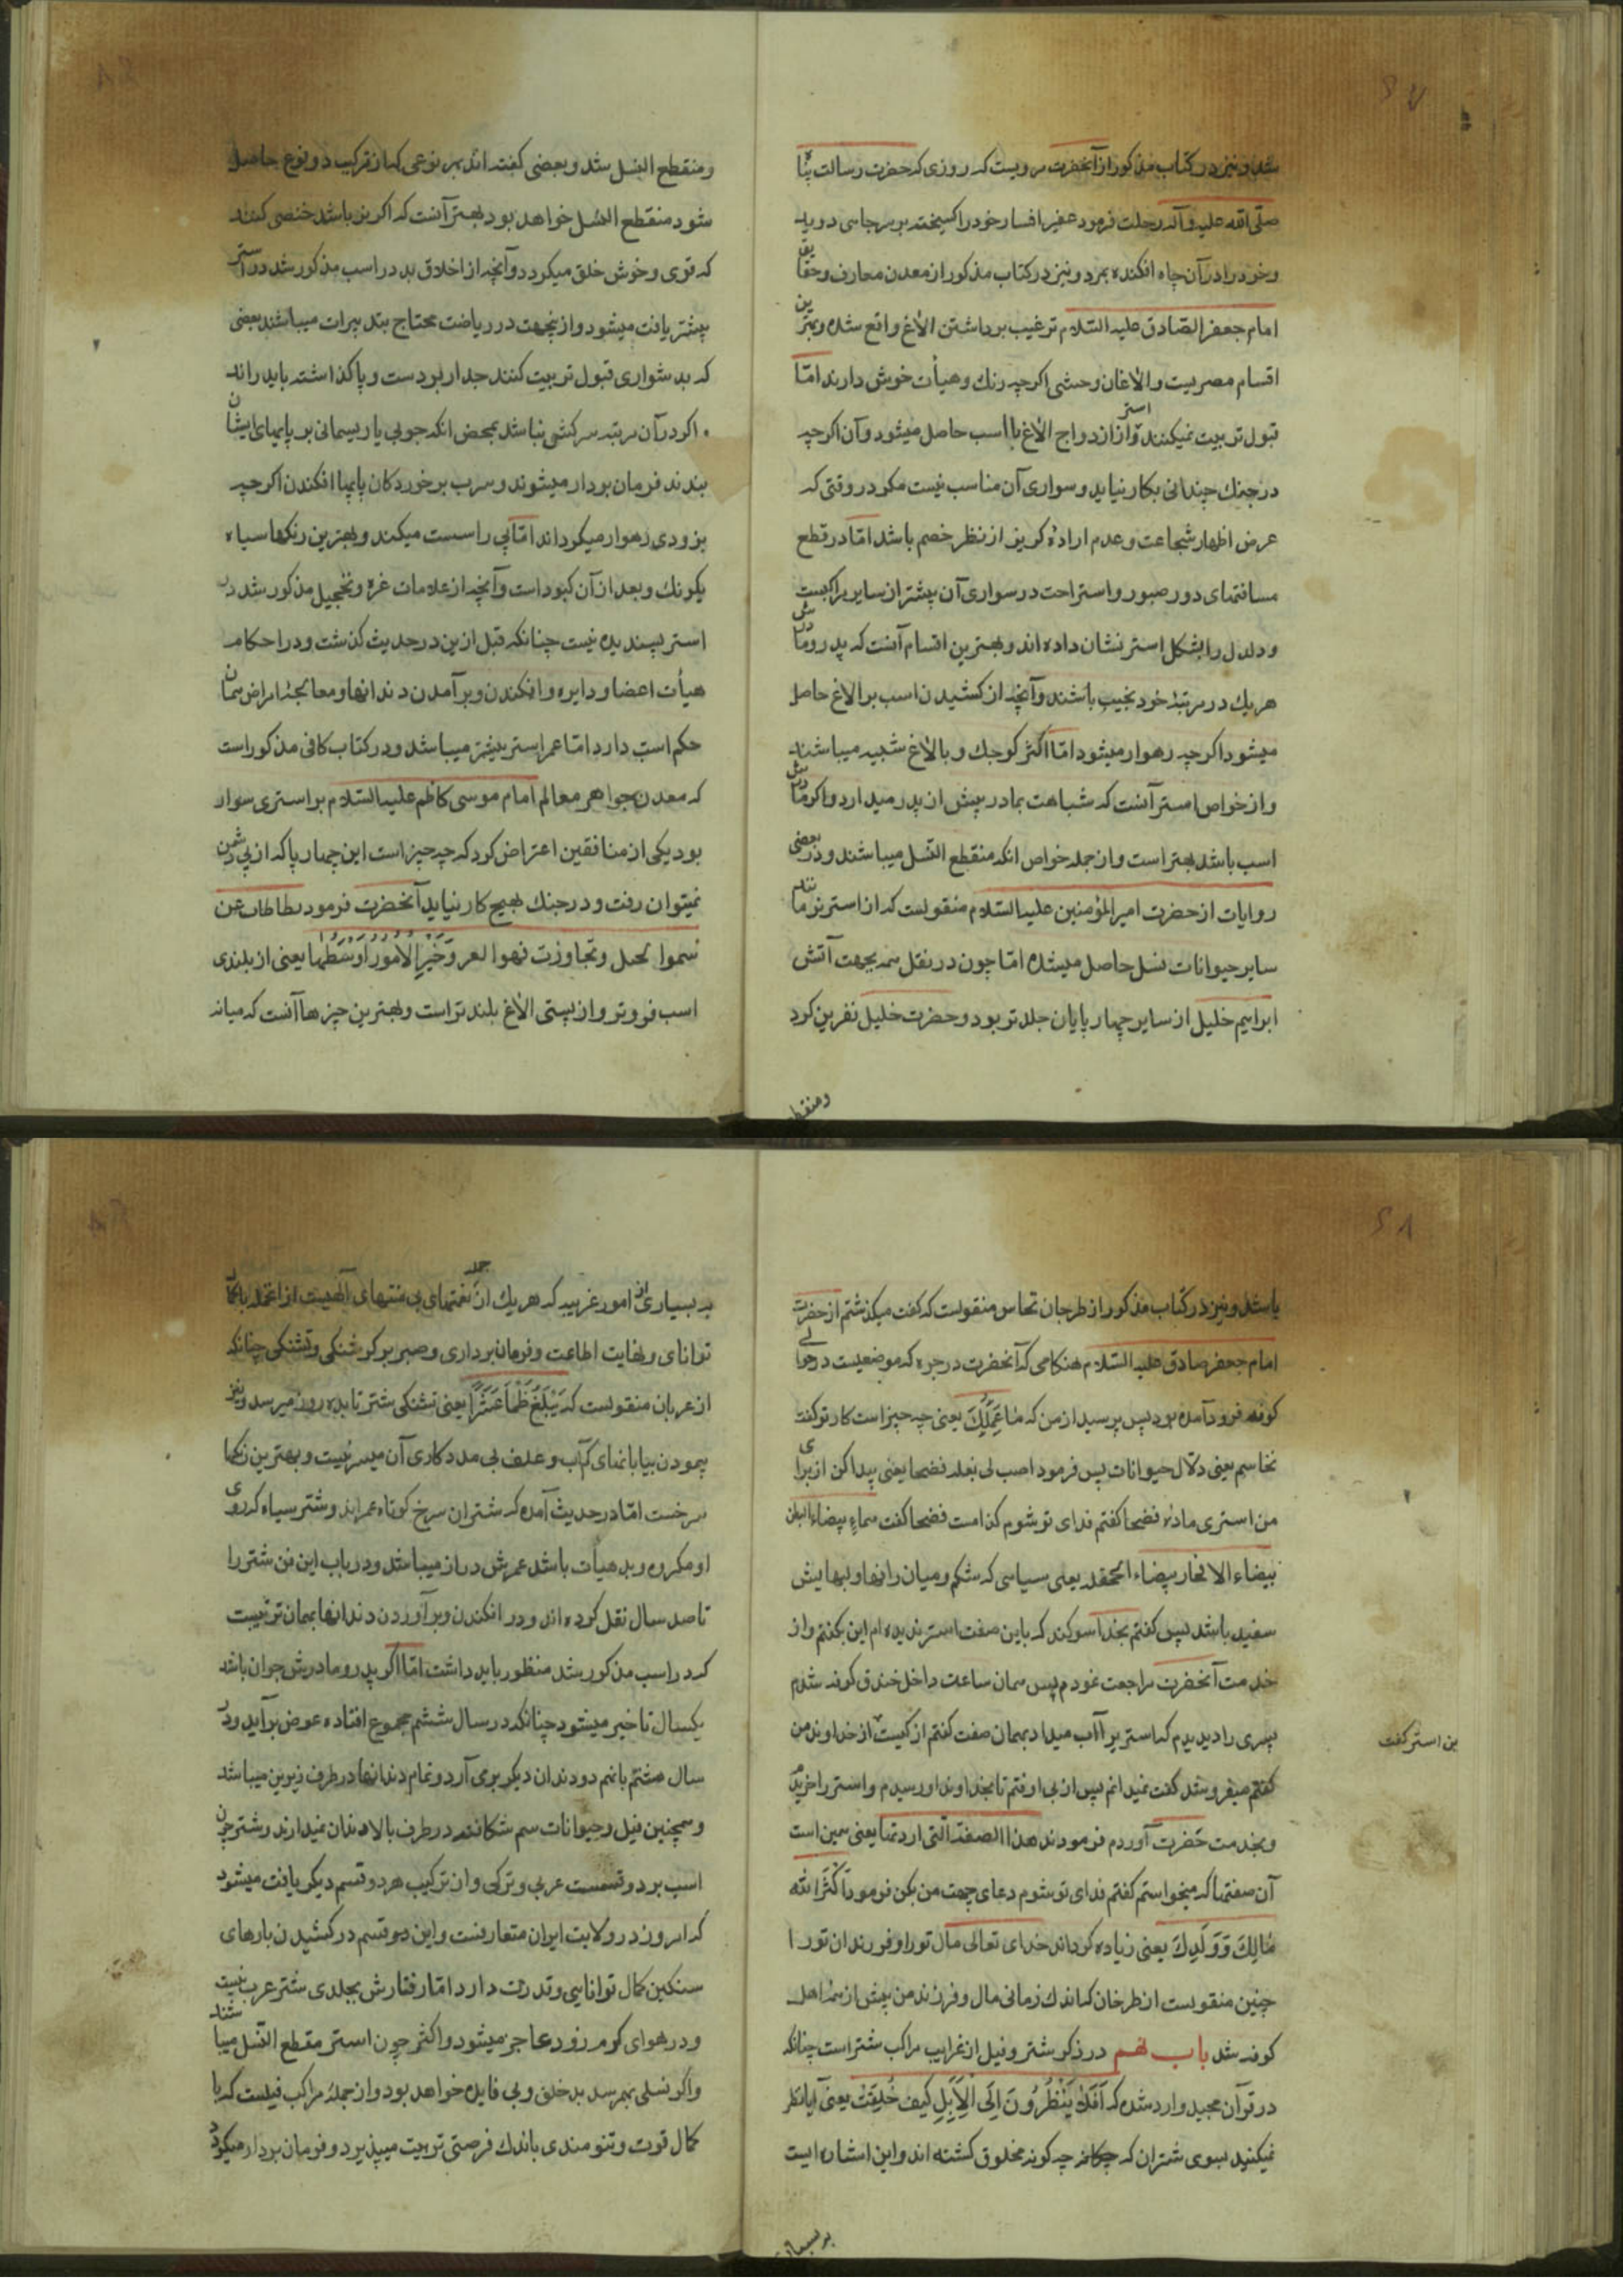 شد و نیز در کتاب مذکور از آنحضرت مرویست که روزی که حضرت رسالت پناه
صلی الله علیه وآله رحلت فرمود عفیر افسار خود را کسیخته بر سر چاهی دوید
و خود را در آن چاه افکنده بمرد و نیز در کتاب مذکور از معدن معارف و حقایق
امام جعفر الصادق علیه السلام ترغیب برداشتن الاغ واقع شده و بهترین
اقسام مصریست و الاغان وحشی اکرچه رنك و هیأت خوش دارند اما
قبول تربیت نمیکنند و استر از ازدواج الاغ با اسب حاصل میشود و آن اکرچه
در جنك چندانی بکار نیاید و سواری آن مناسب نیست مکر در وقتی که
عرض اظهار شجاعت و عدم ارادهٔ کریز از نظر خصم باشد اما در قطع
مسافتهای دور صبور و استراحت در سواری آن بیشتر از سایر مراکبست
و دلدل را بشکل استر نشان داده اند و بهترین اقسام آنست که پدر و مادرش
هریك در مرتبهٔ خود نجیب باشند و آنچه از کشیدن اسب بر الاغ حاصل
میشود اکرچه رهوار میشود اما اکثر کوچك و بالاغ شبیه میباشند
و از خواص استر آنست که شباهت بمادر بیش از پدر میدارد و اکر مادرش
اسب باشد بهتر است و از جمله خواص انکه منقطع النسل میباشند و در بعضی
روایات از حضرت امیر المؤمنین علیه السلام منقولست که از استر نر مانند
سایر حیوانات نسل حاصل میشده اما چون در نقل هیمه بجهت آتش
ابراهیم خلیل از سایر چهار پایان جلدتر بود و حضرت خلیل نفرین کرد
ومنقطع
ومنقطع النسل شد و بعضی کفته اند هر نوعی که از ترکیب دو نوع حاصل
شود منقطع النسل خواهد بود بهتر آنست که اکر نر باشد خصی کنند
که قوی و خوش خلق میکردد و آنچه از اخلاق بد در اسب مذکور شد در استر
بیشتر یافت میشود و ازینجهت در ریاضت محتاج بتدبیرات میباشند بعضی
که بدشواری قبول تربیت کنند جدار بر دست و پا کذاشته باید راند
و اکر در آن مرتبه سرکشی نباشد بمحض انکه چوبی یا ریسمانی بر پایهای ایشان
بندند فرمان بردار میشوند و سرب بر خوردکان پایها افکندن اکرچه
بزودی رهوار میکرداند اما پی را سست میکند و بهترین رنکها سیاه
یکرنك و بعد از آن کبود است و آنچه از علامات غره و تحجیل مذکور شد در
استر پسندیده نیست چنانکه قبل ازین در حدیث کذشت و در احکام
هیأت اعضا و دایره و افکندن و برآمدن دندانها و معالجهٔ امراض همان
حکم اسب دارد اما عمر استر بیشتر میباشد و در کتاب کافی مذکور است
که معدن جواهر معالم امام موسی کاظم علیه السلام بر استری سوار
بود یکی از منافقین اعتراض کرد که چه چیز است این چهار پا که از پی دشمن
نمیتوان رفت و در جنك بهیچ کار نیاید آنحضرت فرمود تطاطات عن
سموا لخیل و تجاوزت قموا لعیر وَخَیرُ الاُمورِ اَوسَطُها یعنی از بلندی
اسب فروتر و از پستی الاغ بلندتر است و بهترین چیزها آنست که میانه
باشد و نیز در کتاب مذکور از طرخان نخاس منقولست که کفت میکذشتم از حضرت
امام جعفر صادق علیه السلام هنکامی که آنحضرت در حیره که موضعیست در حوالی
کوفه فرود آمده بود پس پرسید از من که ما عَمَلُكَ یعنی چه چیز است کار تو کفت
نخاسم یعنی دلال حیوانات پس فرمود اصب لی بغلة فضحا یعنی پیدا کن از برای
من استری ماده فضحا کفتم فدای تو شوم کدامست فضحا کفت دهماء بیضاء البطن
بیضاء الافخاذ بیضاء الجحفله یعنی سیاهی که شکم و میان رانها و لبهایش
سفید باشد پس کفتم بخدا سوکند که باین صفت استر ندیده ام این بکفتم و از
خدمت آنحضرت مراجعت نمودم پس همان ساعت داخل خندق کوفه شدم
پسری را دیدم که استر را آب میداد بهمان صفت کفتم از کیست این استر کفت از خداوند من
کفتم میفروشد کفت نمیدانم پس از پی او رفتم تا بخداوند او رسیدم و استر را خریدم
و بخدمت حضرت آوردم فرمودند هذا الصفة التی اردتها یعنی همین است
آن صفتها که میخواستم کفتم فدای تو شوم دعای جهت من بکن فرمود اَکثَرَ الله
مَالَكَ وَ وَلَدَكَ یعنی زیاده کرداند خدای تعالی مال تو را و فرزندان تو را
چنین منقولست از طرخان که باندك زمانی مال و فرزند من بیش از همه اهل
کوفه شد باب نهم در ذکر شتر و فیل از غرایب مراکب شتر است چنانکه
در قرآن مجید وارد شده که اَفَلا یَنْظُرُونَ اِلَی الْاِبِلِ کَیْفَ خُلِقَتْ یعنی آیا نظر
نمیکنید بسوی شتران که چکانه چه کونه مخلوق کشته اند و این اشاره ایست
بر بسیاری
بر بسیاری از امور غریبه که هریك از آن جمله نعمتهای بی منتهای الهیست از انجمله با کمال
توانای و نهایت اطاعت و فرمان برداری و صبر بر کرسنکی و تشنکی چنانکه
از عربان منقولست که یَبْلُغُ ظَمأ عَشْراً یعنی تشنکی شتر تا بده روز میرسد و نیز
پیمودن بیابانهای کم آب و علف بی مددکاری آن میسر نیست و بهترین رنکها
سرخست اما در حدیث آمده که شتران سرخ کوتاه عمرند و شتر سیاه که روی
او مکروه و بد هیأت باشد عمرش دراز میباشد و در باب این فن شتر را
تا صد سال نقل کرده اند و در افکندن و برآوردن دندانها بهمان ترتیبست
که در اسب مذکور شد منظور باید داشت اما اکر پدر و مادرش جوان باشد
یکسال تاخیر میشود چنانکه در سال ششم مجموع افتاده عوض برآید و در
سال هشتم یا نهم دو دندان دیکر برمی آرد و تمام دندانها در طرف زیرین میباشد
و همچنین فیل و حیوانات سم شکافته در طرف بالا دندان نمیدارند و شتر چون
اسب بر دو قسمست عربی و ترکی و از ترکیب هر دو قسم دیکر یافت میشود
که امروز در ولایت ایران متعارفست و این دو قسم در کشیدن بارهای
سنکین کمال توانایی و قدرت دارد اما رفتارش بجلدی شتر عرب نیست
و در هوای کرم زود عاجز میشود و اکثر چون استر مقطع النسل میباشند
و اکر نسلی بهم رسد بد خلق و بی فایده خواهد بود و از جملهٔ مراکب فیلست که با
کمال قوت و تنومندی باندك فرصتی تربیت میپذیرد و فرمان بردار میکردد